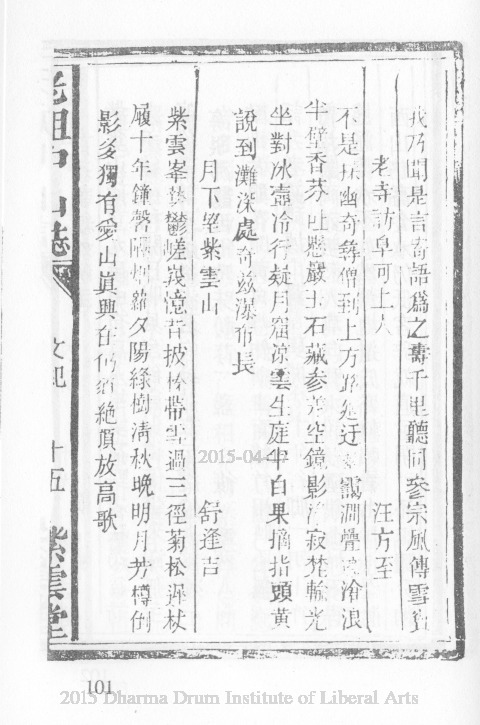 我乃聞是言寄語爲之壽千里聽同參宗風傳雪竇
老寺訪皐可上人 汪方至
不是探幽奇尋僧到上方路迤迂靄澗疊滄浪
半壁香芬吐懸巖玉石藏參差空鏡影寂梵輪光
坐對冰壺冷行疑月窟涼雲生庭半白果摘指頭黃
說到灘深處奇茲瀑布長
月下望紫雲山 舒逢吉
紫雲峯勢鬱嵯峩憶昔披榛帶雪過三徑菊松遲杖
履十年鐘磬隔煙蘿夕陽綠樹清秋晚明月芳樽倒
影多獨有愛山眞興在仍須絶頂放高歌
老祖山志 文紀 十五 紫雲堂
2015-04-
101
2015 Dharma Drum Institute of Liberal Arts